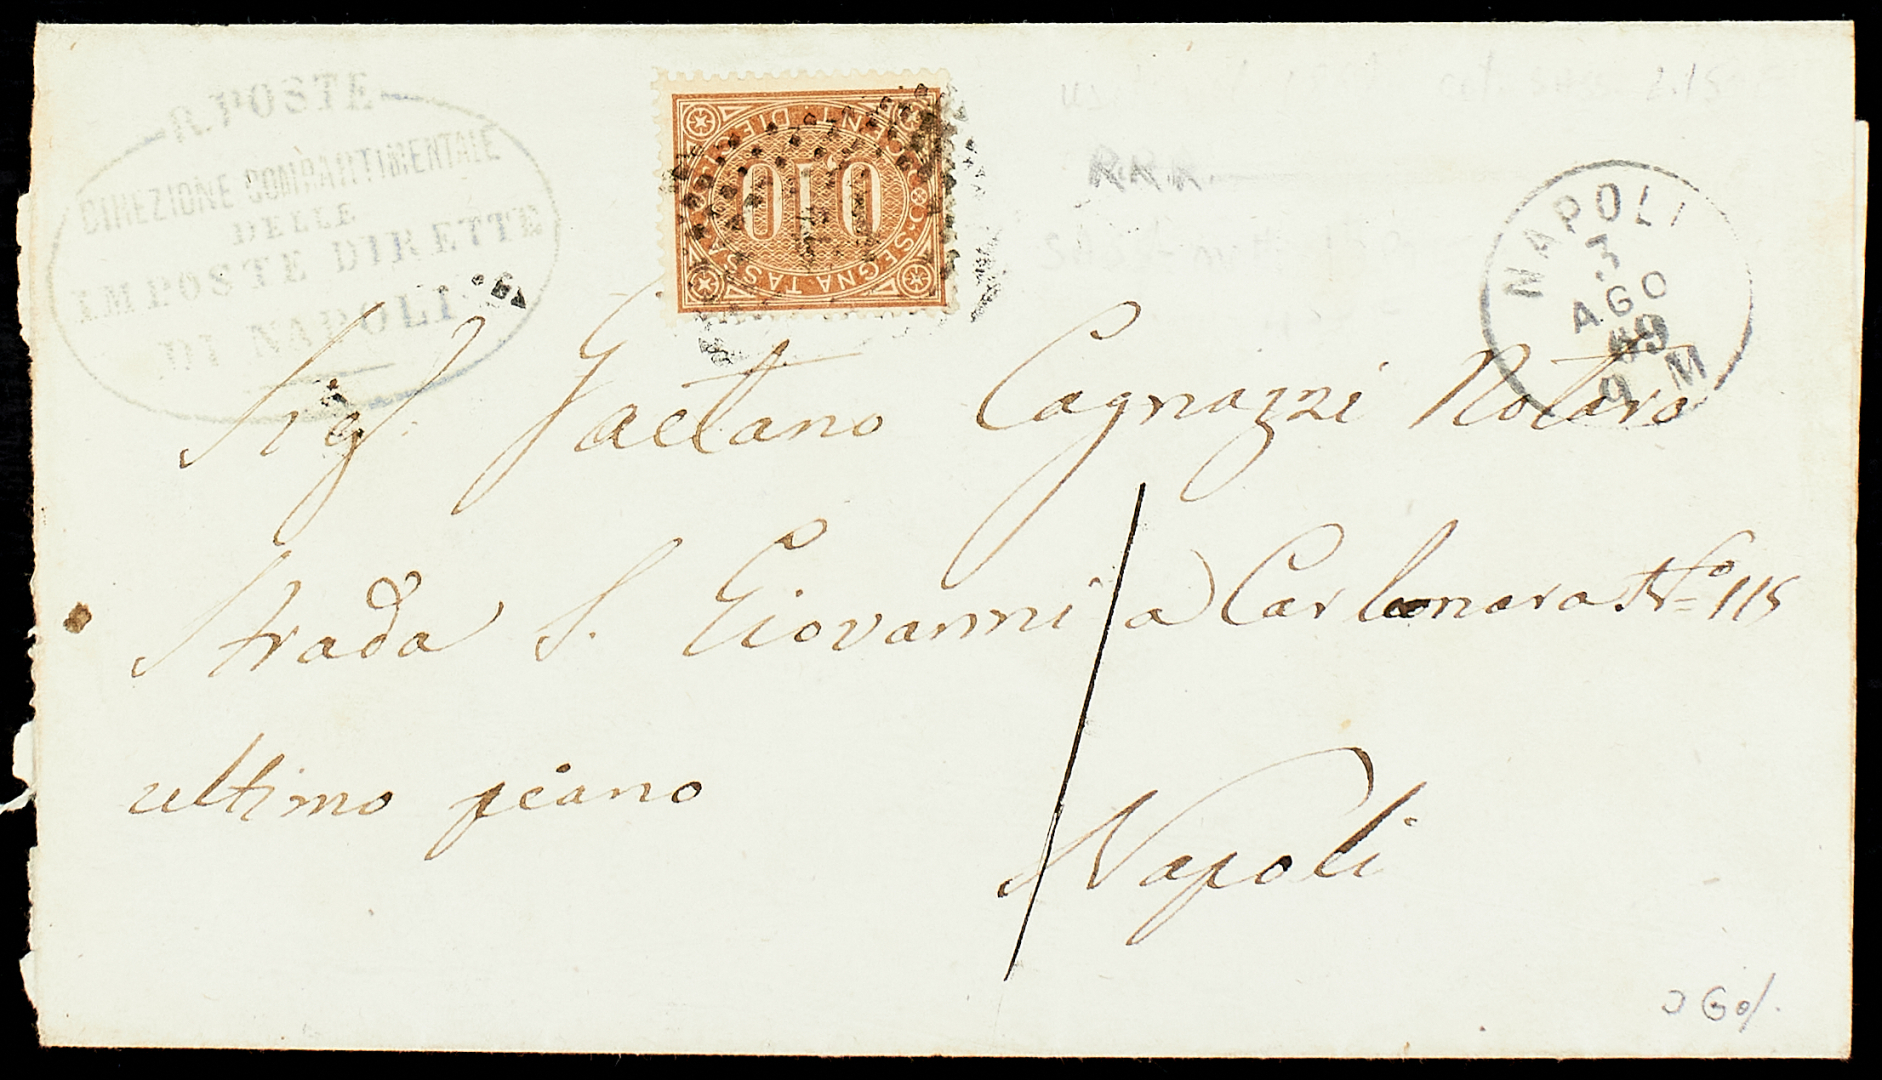 R. POSTE
DIREZIONE COMPARTIMENTALE
DELLE
IMPOSTE DIRETTE
DI NAPOLI
SEGNA TASSA
CENT. DIECI
0,10
RRR
NAPOLI
3
AGO
69
9 M
Sig.r Gaetano Cagnazzi Notaro
Strada S. Giovanni a Carbonara No 115
ultimo piano
Napoli